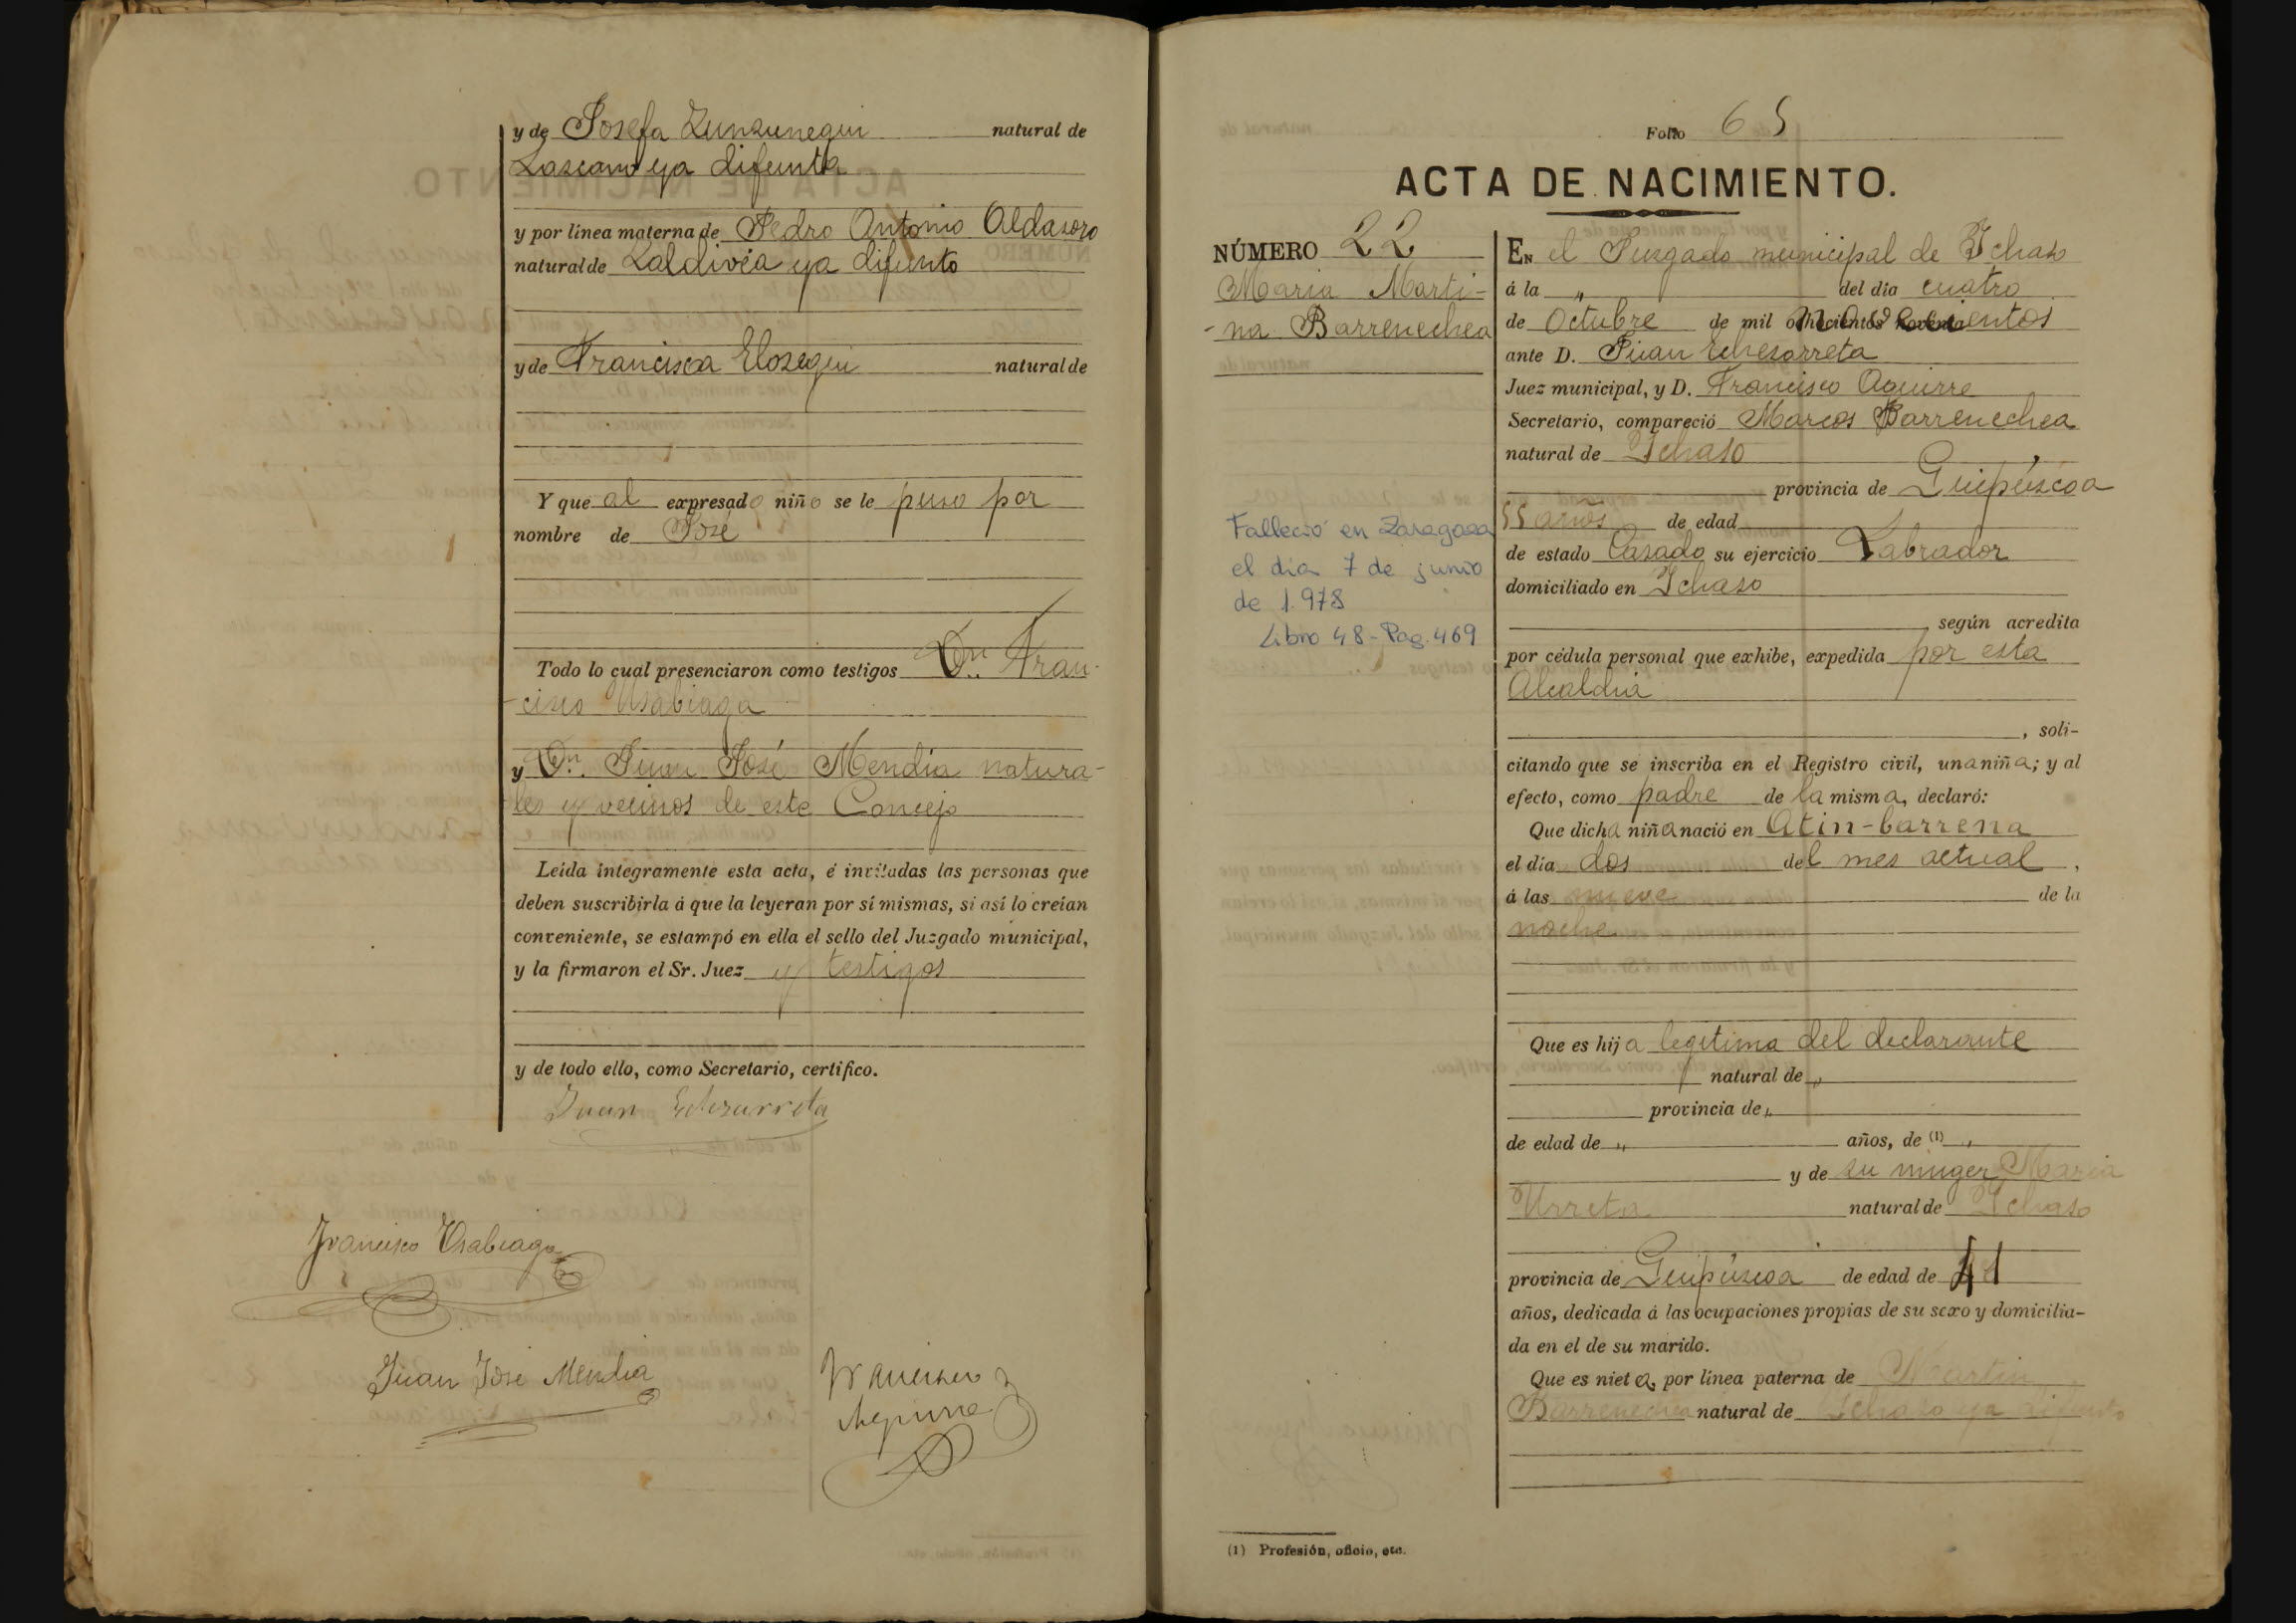 y de Josefa Zunzunegui natural de
Lazcano ya difunta
y por línea materna de Pedro Antonio Aldasoro
natural de Zaldivia ya difunto
y de Francisca Elosegui natural de
Y que al expresado niño se le puso por
nombre de José
Todo lo cual presenciaron como testigos Dn. Fran-
-cisco Usabiaga
y Dn. Juan José Mendia natura-
les y vecinos de este Concejo
Leída íntegramente esta acta, é invitadas las personas que
deben suscribirla á que la leyeran por sí mismas, si así lo creían
conveniente, se estampó en ella el sello del Juzgado municipal,
y la firmaron el Sr. Juez y testigos
y de todo ello, como Secretario, certifico.
Juan Echezarreta
Francisco Usabiaga
Juan José Mendia
Francisco
Aguirre
Folio 65
ACTA DE NACIMIENTO.
NÚMERO 22
Maria Marti-
-na Barrenechea
Falleció en Zaragoza
el día 7 de junio
de 1.978
Libro 48-Pag. 469
En el Juzgado municipal de Ichaso
á la „ del día cuatro
de Octubre de mil novecientos
ante D. Juan Echezarreta
Juez municipal, y D. Francisco Aguirre
Secretario, compareció Marcos Barrenechea
natural de Ichaso
provincia de Guipúscoa
55 años de edad
de estado Casado su ejercicio Labrador
domiciliado en Ichaso
según acredita
por cédula personal que exhibe, expedida por esta
Alcaldia
, soli-
citando que se inscriba en el Registro civil, una niña; y al
efecto, como padre de la misma, declaró:
Que dicha niña nació en Atin-barrena
el día dos del mes actual ,
á las nueve de la
noche
Que es hija legitima del declarante
natural de „
provincia de „
de edad de „ años, de (1) „
y de su muger Maria
Urreta natural de Ichaso
provincia de Guipúscoa de edad de 41
años, dedicada á las ocupaciones propias de su sexo y domicilia-
da en el de su marido.
Que es nieta por línea paterna de Martin
Barrenechea natural de Ichaso ya difunto
(1) Profesión, oficio, etc.